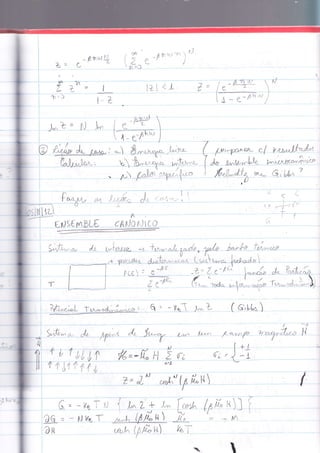 z = e^{-βħω/2} ( Σ_{n=0}^{∞} e^{-βħωn} )^N
Σ_{n=0}^{∞} z^n = 1/(1-z) |z| < 1. Z = ( e^{-βħω/2} / (1 - e^{-βħω}) )^N
ln Z = N ln { e^{-βħω/2} / (1 - e^{-βħω}) }
Lição de casa: a) Energia livre
Calcular: b) Energia interna
c) Calor específico
comparar c/ resultados
do ensemble microcanônico
Helmholtz ou Gibbs?
Fazer as lições de casa!
ENSEMBLE CANÔNICO
Sistema de interesse → termalizado, pelo banho térmico
→ paredes diatérmicas (sistema fechado)
T
P(i) = e^{-βEi} / Σ e^{-βEi} Z = Σ e^{-βEi} função de Partição
(Tem toda informação Termodinâmica)
Potencial Termodinâmico: G = -k_B T ln Z (Gibbs)
Sistema de spins de Ising em um campo magnético H
↑↓↑↓↓↓↑ ℋ = -μ̃₀ H Σ σi σi = { +1 -1
Z = 2^N cosh^N (β μ̃₀ H)
G = -k_B T N { ln 2 + ln [cosh (β μ̃₀ H)] }
∂G/∂H = -N k_B T senh (β μ̃₀ H) / cosh (β μ̃₀ H) μ̃₀ / k_B T = -M